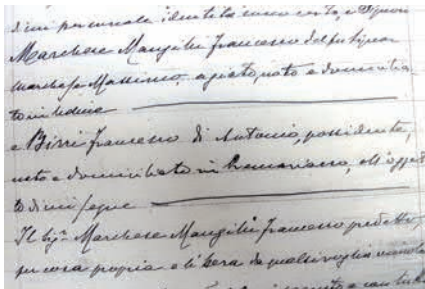 di cui personale identità sono certo, e Signori
Marchese Mangilli Francesco del fu Signor
Marchese Massimo, agiato, nato e domicilia-
to in Udine
e Birri Francesco di Antonio, possidente,
nato e domiciliato in Remanzacco, all'ogget-
to di cui segue
Il Sigr Marchese Mangilli Francesco predetto,
su cosa propria e libera da qualsivoglia vincolo